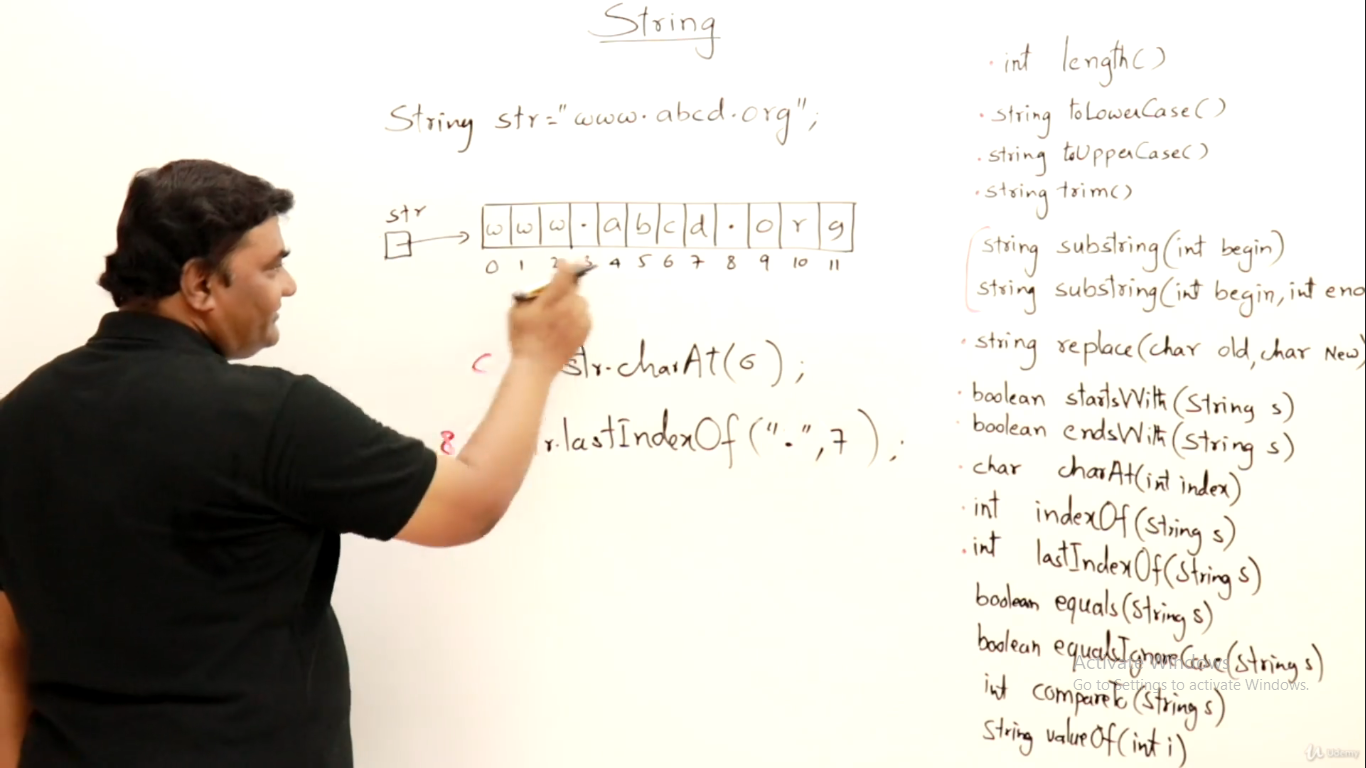 String
String str="www.abcd.org";
str
w w w . a b c d . o r g
0 1 2 3 4 5 6 7 8 9 10 11
c str.charAt(6);
8 r.lastIndexOf(".",7);
. int length()
. string toLowerCase()
. string toUpperCase()
. string trim()
string substring(int begin)
string substring(int begin, int end
. string replace(char old, char New)
. boolean startsWith(String s)
. boolean endsWith(String s)
. char charAt(int index)
. int indexOf(String s)
. int lastIndexOf(String s)
boolean equals(String s)
boolean equalsIgnoreCase(String s)
int compareTo(String s)
String valueOf(int i)
Activate Windows
Go to Settings to activate Windows.
Udemy